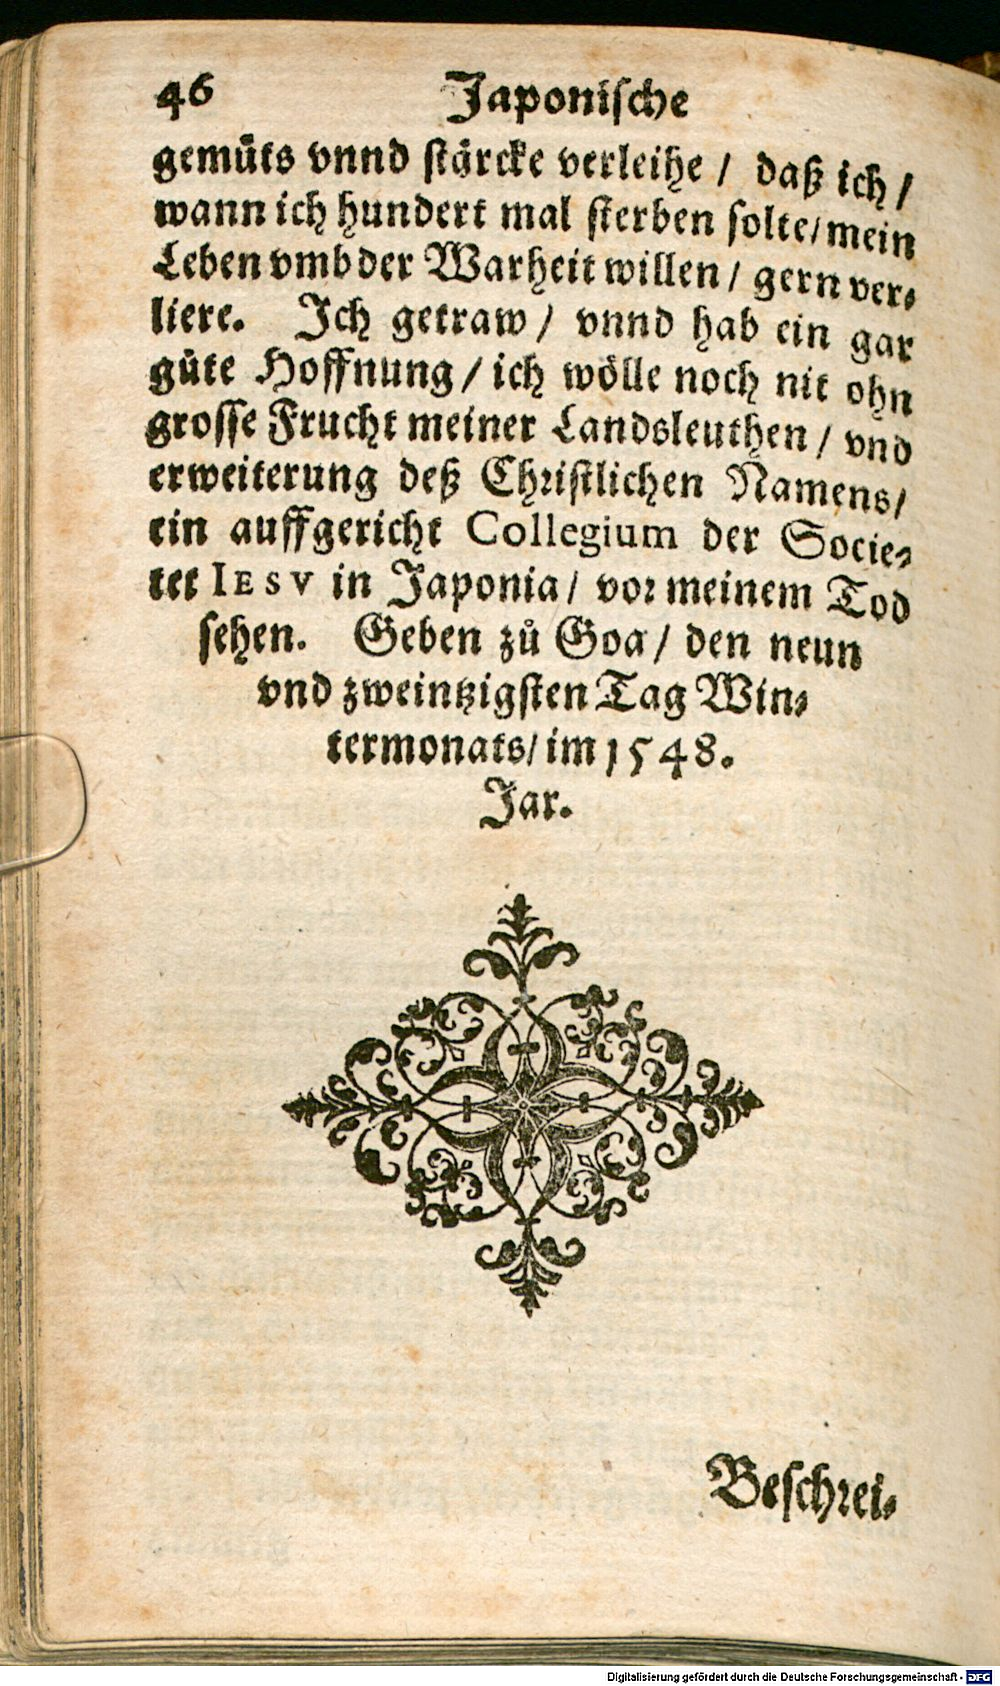 46 Japoniſche
gemuͤts vnnd ſtaͤrcke verleihe / daß ich /
wann ich hundert mal ſterben ſolte / mein
Leben vmb der Warheit willen / gern ver⸗
liere. Ich getraw / vnnd hab ein gar
guͤte Hoffnung / ich woͤlle noch nit ohn
groſſe Frucht meiner Landsleuthen / vnd
erweiterung deß Chꝛiſtlichen Namens /
ein auffgericht Collegium der Socie⸗
tet IESV in Japonia / voꝛ meinem Tod
ſehen. Geben zů Goa / den neun
vnd zweintzigſten Tag Win⸗
termonats / im 1548.
Jar.
Beſchꝛei⸗
Digitalisierung gefördert durch die Deutsche Forschungsgemeinschaft - DFG